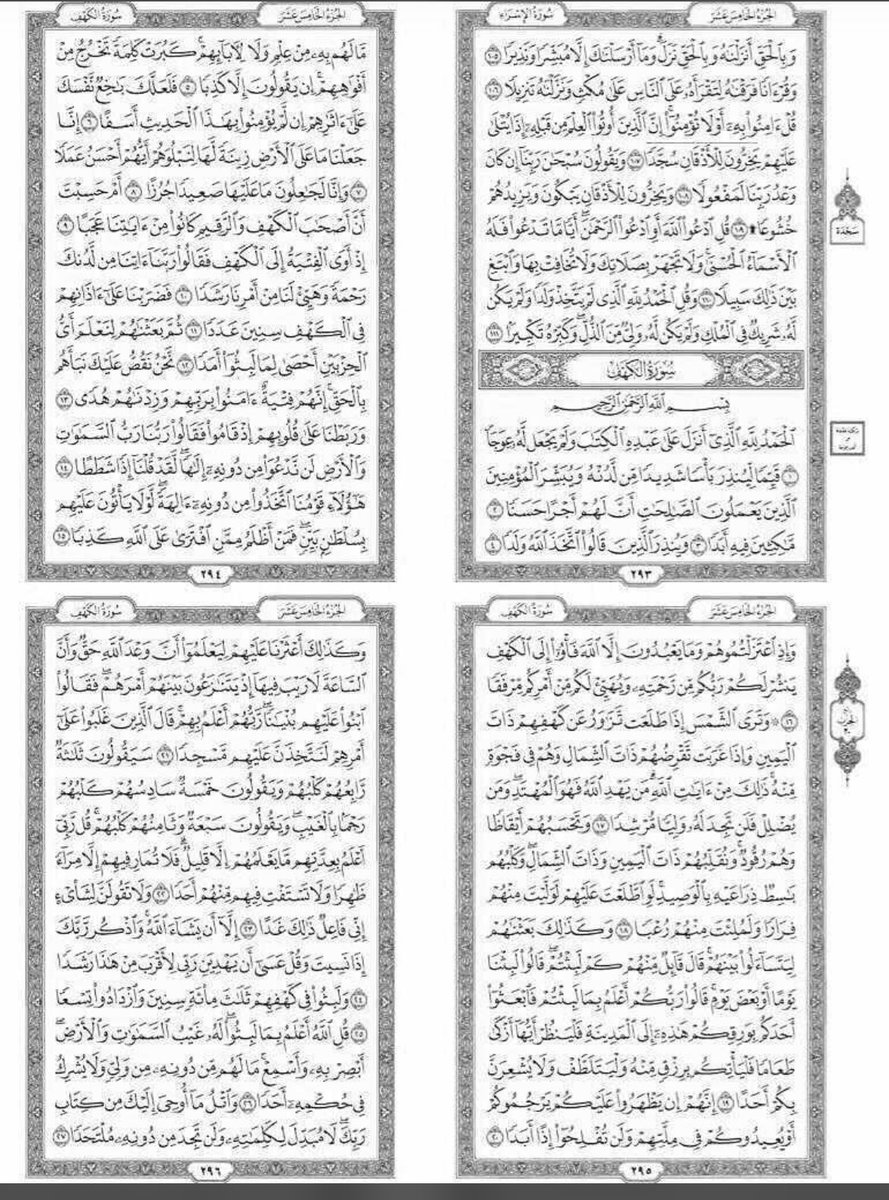 الجُزْءُ الخَامِسَ عَشَرَ
سُورَةُ الإِسْرَاءِ
وَبِٱلْحَقِّ أَنزَلْنَٰهُ وَبِٱلْحَقِّ نَزَلَ ۗ وَمَآ أَرْسَلْنَٰكَ إِلَّا مُبَشِّرًا وَنَذِيرًا ١٠٥
وَقُرْءَانًا فَرَقْنَٰهُ لِتَقْرَأَهُۥ عَلَى ٱلنَّاسِ عَلَىٰ مُكْثٍ وَنَزَّلْنَٰهُ تَنزِيلًا ١٠٦
قُلْ ءَامِنُوا۟ بِهِۦٓ أَوْ لَا تُؤْمِنُوٓا۟ ۚ إِنَّ ٱلَّذِينَ أُوتُوا۟ ٱلْعِلْمَ مِن قَبْلِهِۦٓ إِذَا يُتْلَىٰ
عَلَيْهِمْ يَخِرُّونَ لِلْأَذْقَانِ سُجَّدًا ١٠٧ وَيَقُولُونَ سُبْحَٰنَ رَبِّنَآ إِن كَانَ
وَعْدُ رَبِّنَا لَمَفْعُولًا ١٠٨ وَيَخِرُّونَ لِلْأَذْقَانِ يَبْكُونَ وَيَزِيدُهُمْ
خُشُوعًا ۩ ١٠٩ قُلِ ٱدْعُوا۟ ٱللَّهَ أَوِ ٱدْعُوا۟ ٱلرَّحْمَٰنَ ۖ أَيًّا مَّا تَدْعُوا۟ فَلَهُ
ٱلْأَسْمَآءُ ٱلْحُسْنَىٰ ۚ وَلَا تَجْهَرْ بِصَلَاتِكَ وَلَا تُخَافِتْ بِهَا وَٱبْتَغِ
بَيْنَ ذَٰلِكَ سَبِيلًا ١١٠ وَقُلِ ٱلْحَمْدُ لِلَّهِ ٱلَّذِى لَمْ يَتَّخِذْ وَلَدًا وَلَمْ يَكُن
لَّهُۥ شَرِيكٌ فِى ٱلْمُلْكِ وَلَمْ يَكُن لَّهُۥ وَلِىٌّ مِّنَ ٱلذُّلِّ ۖ وَكَبِّرْهُ تَكْبِيرًۢا ١١١
سُورَةُ الكَهْفِ
بِسْمِ ٱللَّهِ ٱلرَّحْمَٰنِ ٱلرَّحِيمِ
ٱلْحَمْدُ لِلَّهِ ٱلَّذِىٓ أَنزَلَ عَلَىٰ عَبْدِهِ ٱلْكِتَٰبَ وَلَمْ يَجْعَل لَّهُۥ عِوَجَا
١ قَيِّمًا لِّيُنذِرَ بَأْسًا شَدِيدًا مِّن لَّدُنْهُ وَيُبَشِّرَ ٱلْمُؤْمِنِينَ
ٱلَّذِينَ يَعْمَلُونَ ٱلصَّٰلِحَٰتِ أَنَّ لَهُمْ أَجْرًا حَسَنًا ٢
مَّٰكِثِينَ فِيهِ أَبَدًا ٣ وَيُنذِرَ ٱلَّذِينَ قَالُوا۟ ٱتَّخَذَ ٱللَّهُ وَلَدًا ٤
٢٩٣
سَجْدَة
الجُزْءُ الخَامِسَ عَشَرَ
سُورَةُ الكَهْفِ
مَّا لَهُم بِهِۦ مِنْ عِلْمٍ وَلَا لِءَابَآئِهِمْ ۚ كَبُرَتْ كَلِمَةً تَخْرُجُ مِنْ
أَفْوَٰهِهِمْ ۚ إِن يَقُولُونَ إِلَّا كَذِبًا ٥ فَلَعَلَّكَ بَٰخِعٌ نَّفْسَكَ
عَلَىٰٓ ءَاثَٰرِهِمْ إِن لَّمْ يُؤْمِنُوا۟ بِهَٰذَا ٱلْحَدِيثِ أَسَفًا ٦ إِنَّا
جَعَلْنَا مَا عَلَى ٱلْأَرْضِ زِينَةً لَّهَا لِنَبْلُوَهُمْ أَيُّهُمْ أَحْسَنُ عَمَلًا
٧ وَإِنَّا لَجَٰعِلُونَ مَا عَلَيْهَا صَعِيدًا جُرُزًا ٨ أَمْ حَسِبْتَ
أَنَّ أَصْحَٰبَ ٱلْكَهْفِ وَٱلرَّقِيمِ كَانُوا۟ مِنْ ءَايَٰتِنَا عَجَبًا ٩
إِذْ أَوَى ٱلْفِتْيَةُ إِلَى ٱلْكَهْفِ فَقَالُوا۟ رَبَّنَآ ءَاتِنَا مِن لَّدُنكَ
رَحْمَةً وَهَيِّئْ لَنَا مِنْ أَمْرِنَا رَشَدًا ١٠ فَضَرَبْنَا عَلَىٰٓ ءَاذَانِهِمْ
فِى ٱلْكَهْفِ سِنِينَ عَدَدًا ١١ ثُمَّ بَعَثْنَٰهُمْ لِنَعْلَمَ أَىُّ
ٱلْحِزْبَيْنِ أَحْصَىٰ لِمَا لَبِثُوٓا۟ أَمَدًا ١٢ نَّحْنُ نَقُصُّ عَلَيْكَ نَبَأَهُم
بِٱلْحَقِّ ۚ إِنَّهُمْ فِتْيَةٌ ءَامَنُوا۟ بِرَبِّهِمْ وَزِدْنَٰهُمْ هُدًى ١٣
وَرَبَطْنَا عَلَىٰ قُلُوبِهِمْ إِذْ قَامُوا۟ فَقَالُوا۟ رَبُّنَا رَبُّ ٱلسَّمَٰوَٰتِ
وَٱلْأَرْضِ لَن نَّدْعُوَا۟ مِن دُونِهِۦٓ إِلَٰهًا ۖ لَّقَدْ قُلْنَآ إِذًا شَطَطًا ١٤
هَٰٓؤُلَآءِ قَوْمُنَا ٱتَّخَذُوا۟ مِن دُونِهِۦٓ ءَالِهَةً ۖ لَّوْلَا يَأْتُونَ عَلَيْهِم
بِسُلْطَٰنٍۭ بَيِّنٍ ۖ فَمَنْ أَظْلَمُ مِمَّنِ ٱفْتَرَىٰ عَلَى ٱللَّهِ كَذِبًا ١٥
٢٩٤
الجُزْءُ الخَامِسَ عَشَرَ
سُورَةُ الكَهْفِ
وَإِذِ ٱعْتَزَلْتُمُوهُمْ وَمَا يَعْبُدُونَ إِلَّا ٱللَّهَ فَأْوُۥٓا۟ إِلَى ٱلْكَهْفِ
يَنشُرْ لَكُمْ رَبُّكُم مِّن رَّحْمَتِهِۦ وَيُهَيِّئْ لَكُم مِّنْ أَمْرِكُم مِّرْفَقًا
١٦ ۞ وَتَرَى ٱلشَّمْسَ إِذَا طَلَعَت تَّزَٰوَرُ عَن كَهْفِهِمْ ذَاتَ
ٱلْيَمِينِ وَإِذَا غَرَبَت تَّقْرِضُهُمْ ذَاتَ ٱلشِّمَالِ وَهُمْ فِى فَجْوَةٍ
مِّنْهُ ۚ ذَٰلِكَ مِنْ ءَايَٰتِ ٱللَّهِ ۗ مَن يَهْدِ ٱللَّهُ فَهُوَ ٱلْمُهْتَدِ ۖ وَمَن
يُضْلِلْ فَلَن تَجِدَ لَهُۥ وَلِيًّا مُّرْشِدًا ١٧ وَتَحْسَبُهُمْ أَيْقَاظًا
وَهُمْ رُقُودٌ ۚ وَنُقَلِّبُهُمْ ذَاتَ ٱلْيَمِينِ وَذَاتَ ٱلشِّمَالِ ۖ وَكَلْبُهُم
بَٰسِطٌ ذِرَاعَيْهِ بِٱلْوَصِيدِ ۚ لَوِ ٱطَّلَعْتَ عَلَيْهِمْ لَوَلَّيْتَ مِنْهُمْ
فِرَارًا وَلَمُلِئْتَ مِنْهُمْ رُعْبًا ١٨ وَكَذَٰلِكَ بَعَثْنَٰهُمْ
لِيَتَسَآءَلُوا۟ بَيْنَهُمْ ۚ قَالَ قَآئِلٌ مِّنْهُمْ كَمْ لَبِثْتُمْ ۖ قَالُوا۟ لَبِثْنَا
يَوْمًا أَوْ بَعْضَ يَوْمٍ ۚ قَالُوا۟ رَبُّكُمْ أَعْلَمُ بِمَا لَبِثْتُمْ فَٱبْعَثُوٓا۟
أَحَدَكُم بِوَرِقِكُمْ هَٰذِهِۦٓ إِلَى ٱلْمَدِينَةِ فَلْيَنظُرْ أَيُّهَآ أَزْكَىٰ
طَعَامًا فَلْيَأْتِكُم بِرِزْقٍ مِّنْهُ وَلْيَتَلَطَّفْ وَلَا يُشْعِرَنَّ
بِكُمْ أَحَدًا ١٩ إِنَّهُمْ إِن يَظْهَرُوا۟ عَلَيْكُمْ يَرْجُمُوكُمْ
أَوْ يُعِيدُوكُمْ فِى مِلَّتِهِمْ وَلَن تُفْلِحُوٓا۟ إِذًا أَبَدًا ٢٠
٢٩٥
الجُزْءُ الخَامِسَ عَشَرَ
سُورَةُ الكَهْفِ
وَكَذَٰلِكَ أَعْثَرْنَا عَلَيْهِمْ لِيَعْلَمُوٓا۟ أَنَّ وَعْدَ ٱللَّهِ حَقٌّ وَأَنَّ
ٱلسَّاعَةَ لَا رَيْبَ فِيهَآ إِذْ يَتَنَٰزَعُونَ بَيْنَهُمْ أَمْرَهُمْ ۖ فَقَالُوا۟
ٱبْنُوا۟ عَلَيْهِم بُنْيَٰنًا ۖ رَّبُّهُمْ أَعْلَمُ بِهِمْ ۚ قَالَ ٱلَّذِينَ غَلَبُوا۟ عَلَىٰٓ
أَمْرِهِمْ لَنَتَّخِذَنَّ عَلَيْهِم مَّسْجِدًا ٢١ سَيَقُولُونَ ثَلَٰثَةٌ
رَّابِعُهُمْ كَلْبُهُمْ وَيَقُولُونَ خَمْسَةٌ سَادِسُهُمْ كَلْبُهُمْ
رَجْمًۢا بِٱلْغَيْبِ ۖ وَيَقُولُونَ سَبْعَةٌ وَثَامِنُهُمْ كَلْبُهُمْ ۚ قُل رَّبِّىٓ
أَعْلَمُ بِعِدَّتِهِم مَّا يَعْلَمُهُمْ إِلَّا قَلِيلٌ ۗ فَلَا تُمَارِ فِيهِمْ إِلَّا مِرَآءً
ظَٰهِرًا وَلَا تَسْتَفْتِ فِيهِم مِّنْهُمْ أَحَدًا ٢٢ وَلَا تَقُولَنَّ لِشَا۟ىْءٍ
إِنِّى فَاعِلٌ ذَٰلِكَ غَدًا ٢٣ إِلَّآ أَن يَشَآءَ ٱللَّهُ ۚ وَٱذْكُر رَّبَّكَ
إِذَا نَسِيتَ وَقُلْ عَسَىٰٓ أَن يَهْدِيَنِ رَبِّى لِأَقْرَبَ مِنْ هَٰذَا رَشَدًا
٢٤ وَلَبِثُوا۟ فِى كَهْفِهِمْ ثَلَٰثَ مِا۟ئَةٍ سِنِينَ وَٱزْدَادُوا۟ تِسْعًا
٢٥ قُلِ ٱللَّهُ أَعْلَمُ بِمَا لَبِثُوا۟ ۖ لَهُۥ غَيْبُ ٱلسَّمَٰوَٰتِ وَٱلْأَرْضِ ۖ
أَبْصِرْ بِهِۦ وَأَسْمِعْ ۚ مَا لَهُم مِّن دُونِهِۦ مِن وَلِىٍّ وَلَا يُشْرِكُ
فِى حُكْمِهِۦٓ أَحَدًا ٢٦ وَٱتْلُ مَآ أُوحِىَ إِلَيْكَ مِن كِتَابِ
رَبِّكَ ۖ لَا مُبَدِّلَ لِكَلِمَٰتِهِۦ وَلَن تَجِدَ مِن دُونِهِۦ مُلْتَحَدًا ٢٧
٢٩٦